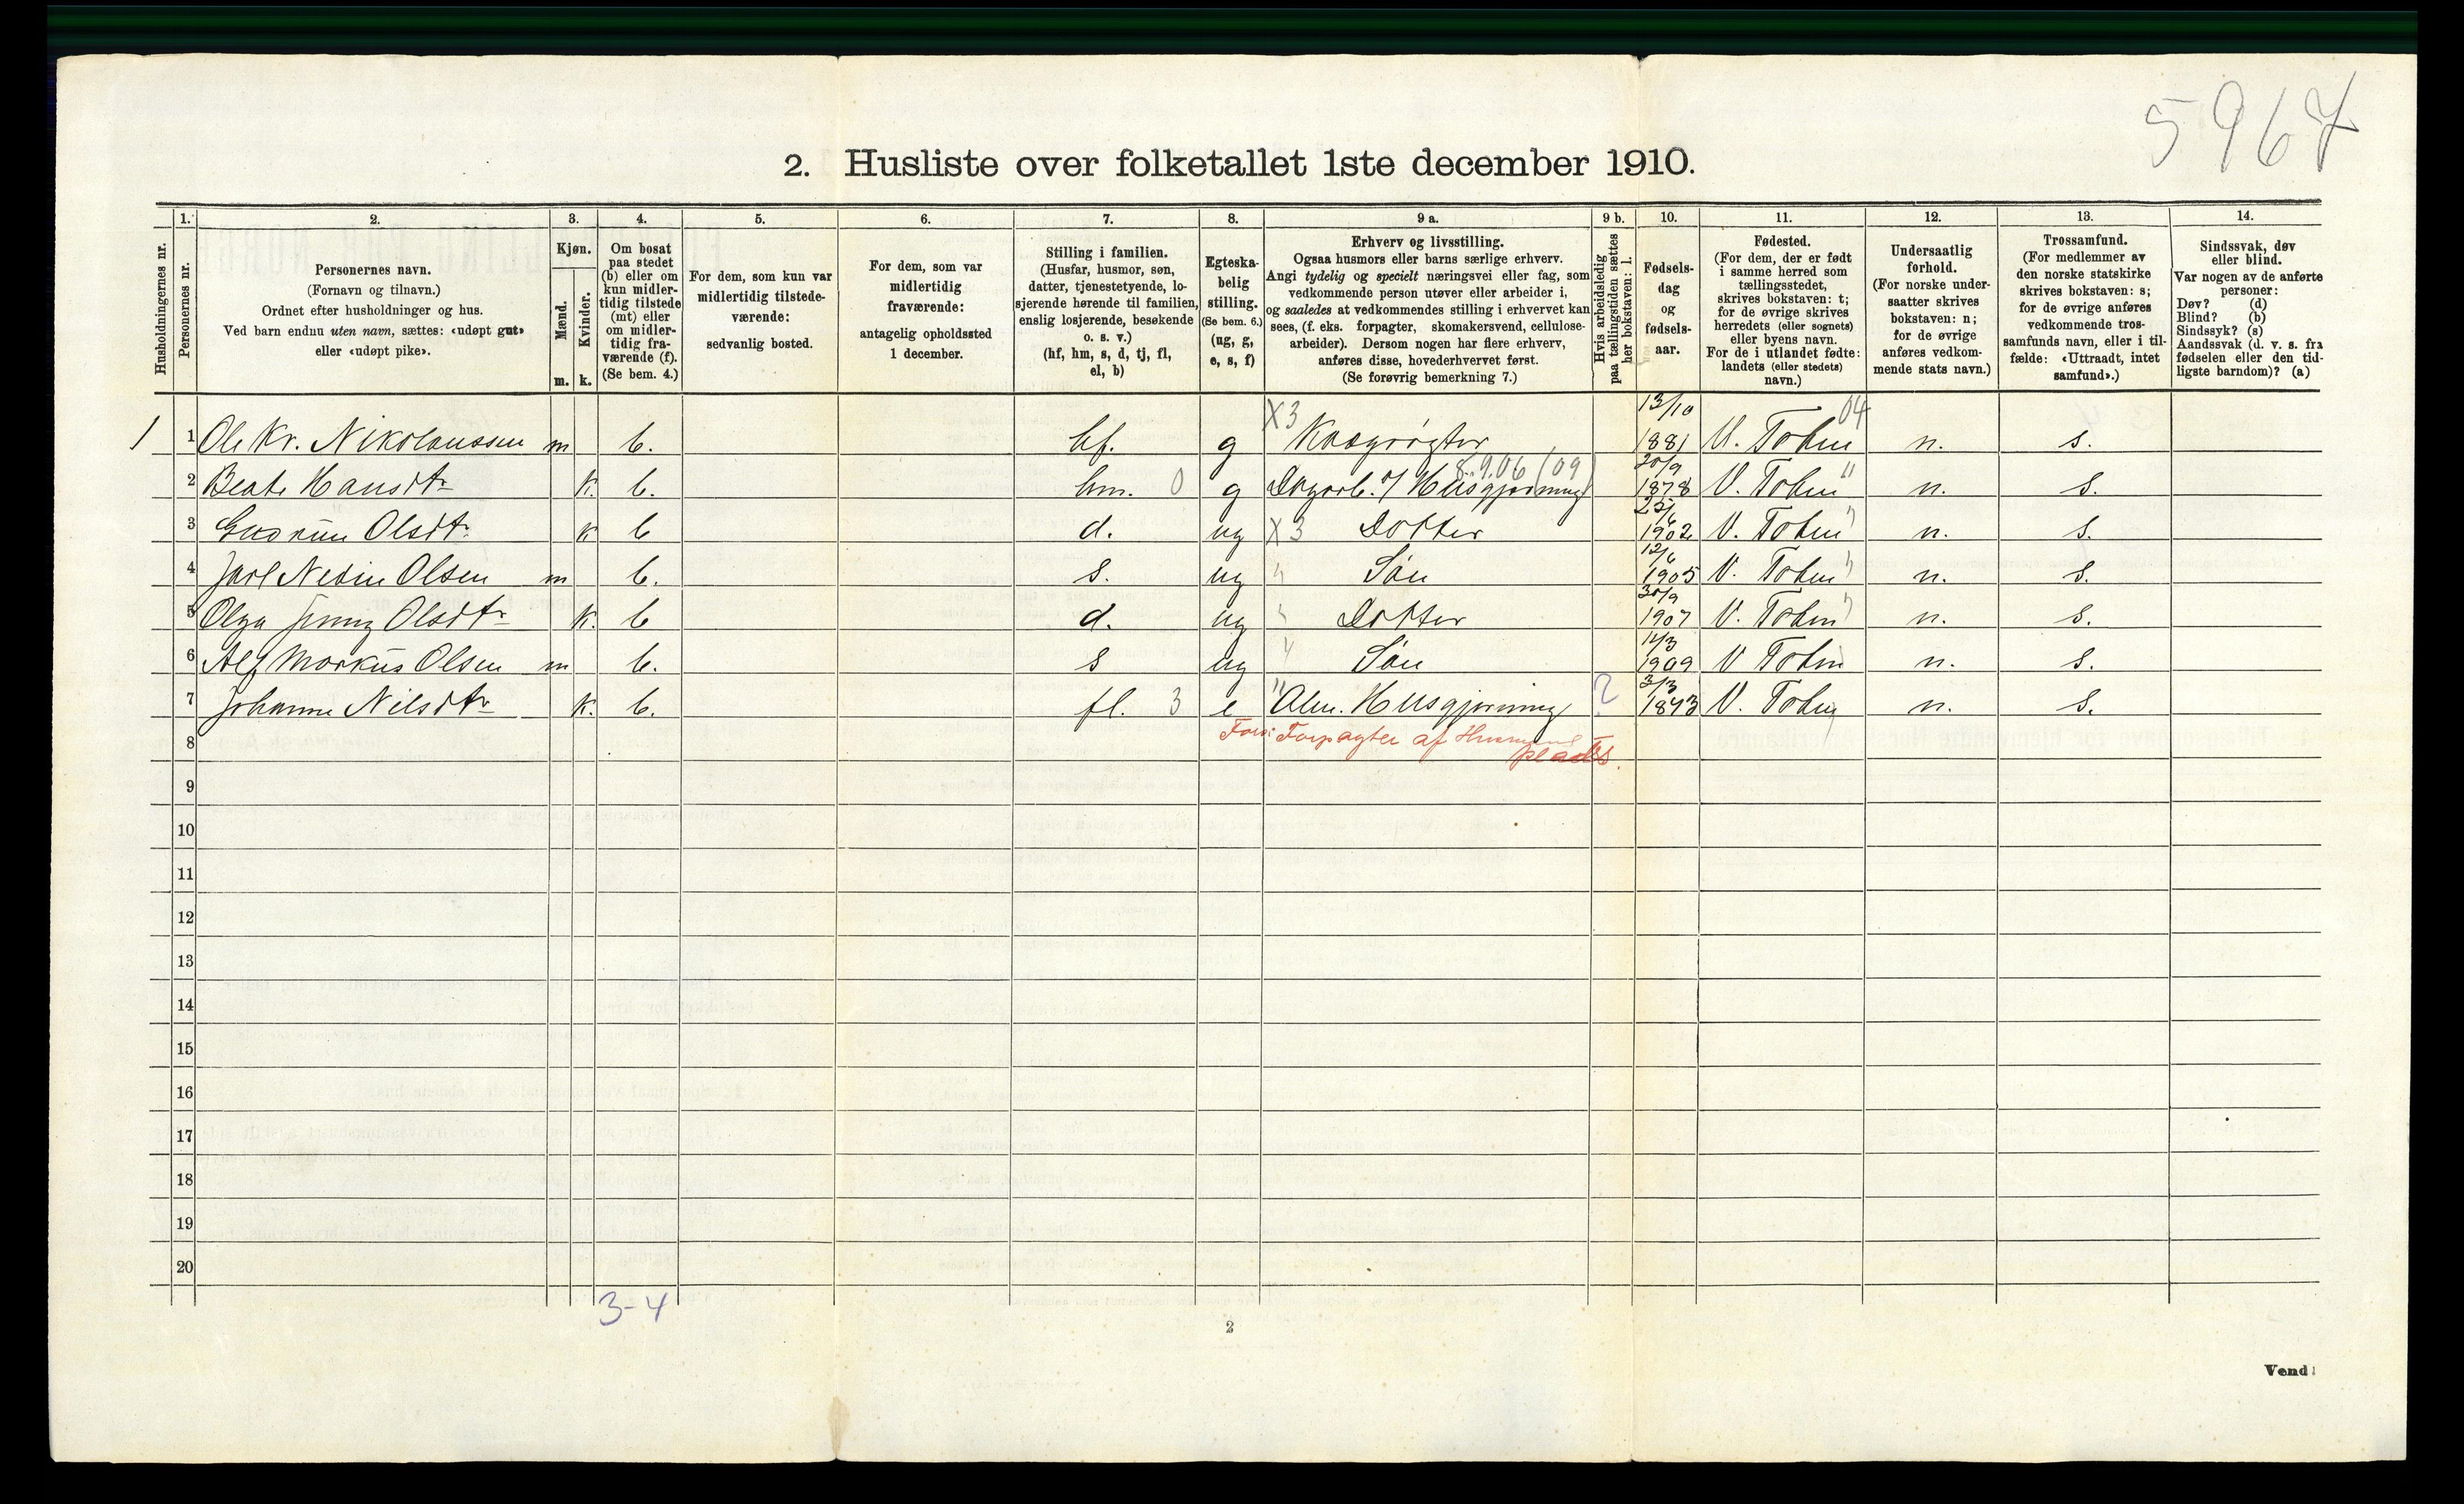 5967
2. Husliste over folketallet 1ste december 1910.
Husholdningernes nr.
1.
Personernes nr.
2.
Personernes navn.
(Fornavn og tilnavn.)
Ordnet efter husholdninger og hus.
Ved barn endnu uten navn, sættes: «udøpt gut»
eller «udøpt pike».
3.
Kjøn.
Mænd.
Kvinder.
m. k.
4.
Om bosat
paa stedet
(b) eller om
kun midler-
tidig tilstede
(mt) eller
om midler-
tidig fra-
værende (f).
(Se bem. 4.)
5.
For dem, som kun var
midlertidig tilstede-
værende:
sedvanlig bosted.
6.
For dem, som var
midlertidig
fraværende:
antagelig opholdssted
1 december.
7.
Stilling i familien.
(Husfar, husmor, søn,
datter, tjenestetyende, lo-
sjerende hørende til familien,
enslig losjerende, besøkende
o. s. v.)
(hf, hm, s, d, tj, fl,
el, b)
8.
Egteska-
belig
stilling.
(Se bem. 6.)
(ug, g,
e, s, f)
9 a.
Erhverv og livsstilling.
Ogsaa husmors eller barns særlige erhverv.
Angi tydelig og specielt næringsvei eller fag, som
vedkommende person utøver eller arbeider i,
og saaledes at vedkommendes stilling i erhvervet kan
sees, (f. eks. forpagter, skomakersvend, cellulose-
arbeider). Dersom nogen har flere erhverv,
anføres disse, hovederhvervet først.
(Se forøvrig bemerkning 7.)
9 b.
Hvis arbeidsledig
paa tællingstiden sættes
her bokstaven: l.
10.
Fødsels-
dag
og
fødsels-
aar.
11.
Fødested.
(For dem, der er født
i samme herred som
tællingsstedet,
skrives bokstaven: t;
for de øvrige skrives
herredets (eller sognets)
eller byens navn.
For de i utlandet fødte:
landets (eller stedets)
navn.)
12.
Undersaatlig
forhold.
(For norske under-
saatter skrives
bokstaven: n;
for de øvrige
anføres vedkom-
mende stats navn.)
13.
Trossamfund.
(For medlemmer av
den norske statskirke
skrives bokstaven: s;
for de øvrige anføres
vedkommende tros-
samfunds navn, eller i til-
fælde: «Uttraadt, intet
samfund».)
14.
Sindssvak, døv
eller blind.
Var nogen av de anførte
personer:
Døv? (d)
Blind? (b)
Sindssyk? (s)
Aandssvak (d. v. s. fra
fødselen eller den tid-
ligste barndom)? (a)
1 1 Ole Kr. Nikolaussen m b. hf. g X3 13/10 1881 V. Toten 04 n. s.
2 Beate Hansdtr k. b. hm. 0 g Dagarb. 8.9.06 (09) Husgjerning 20/9 1878 V. Toten " n. s.
3 Gudrun Olsdtr. k b d. ug X3 Dotter 1902 V. Toten " n. s.
4 Jarl Nedin Olsen m b. s. ug " Søn 12/6 1905 V. Toten " n. s.
5 Olga Jenny Olsdtr k. b d. ug " Dotter 30/9 1907 V. Toten " n. s.
6 Alf Markus Olsen m b. s ug " Søn 11/3 1909 V Toten n. s.
7 Johanne Nilsdtr k. b. fl. 3 e " Alm. Husgjerning ? 3/3 1843 V. Toten n. s.
8 Fors: Forpagter af Husmands
plads.
9
10
11
12
13
14
15
16
17
18
19
20
3-4
2
Vend!